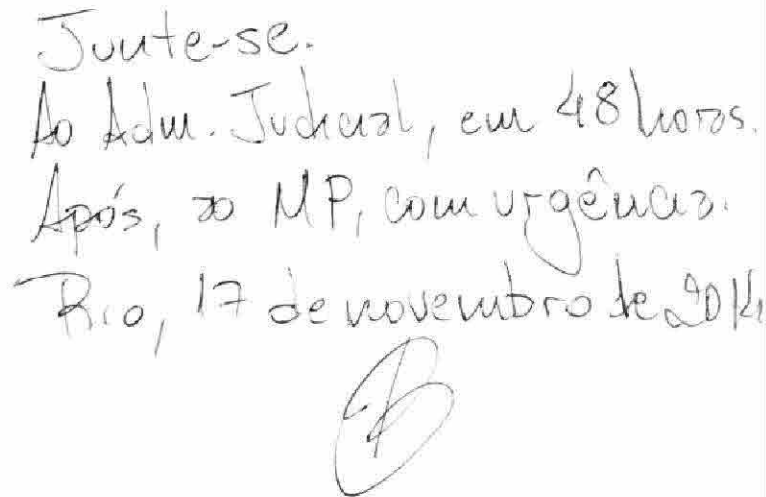 Junte-se.
Ao Adm. Judicial, em 48 horas.
Após, ao MP, com urgência.
Rio, 17 de novembro de 2014